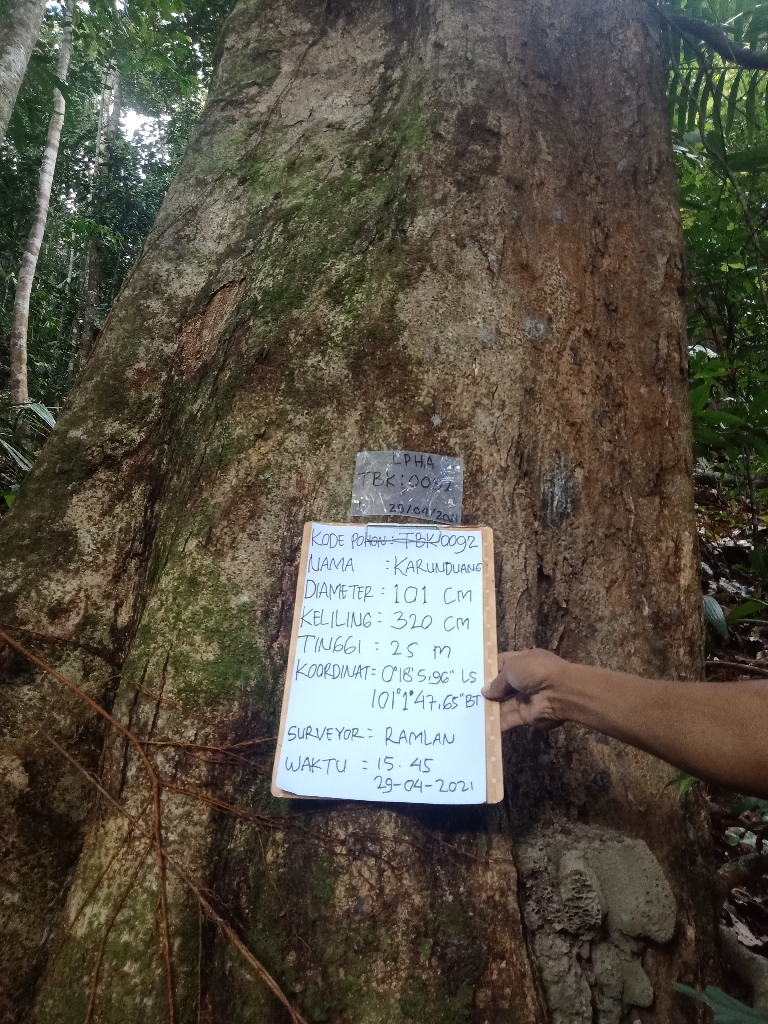 LPHA
TBK:0092
29/04/2021
KODE POHON : TBK 0092
NAMA : KARUNDUANG
DIAMETER : 101 CM
KELILING : 320 CM
TINGGI : 25 M
KOORDINAT = 0°18'5,96" LS
101°1°47,65"BT
SURVEYOR = RAMLAN
WAKTU = 15.45
29-04-2021